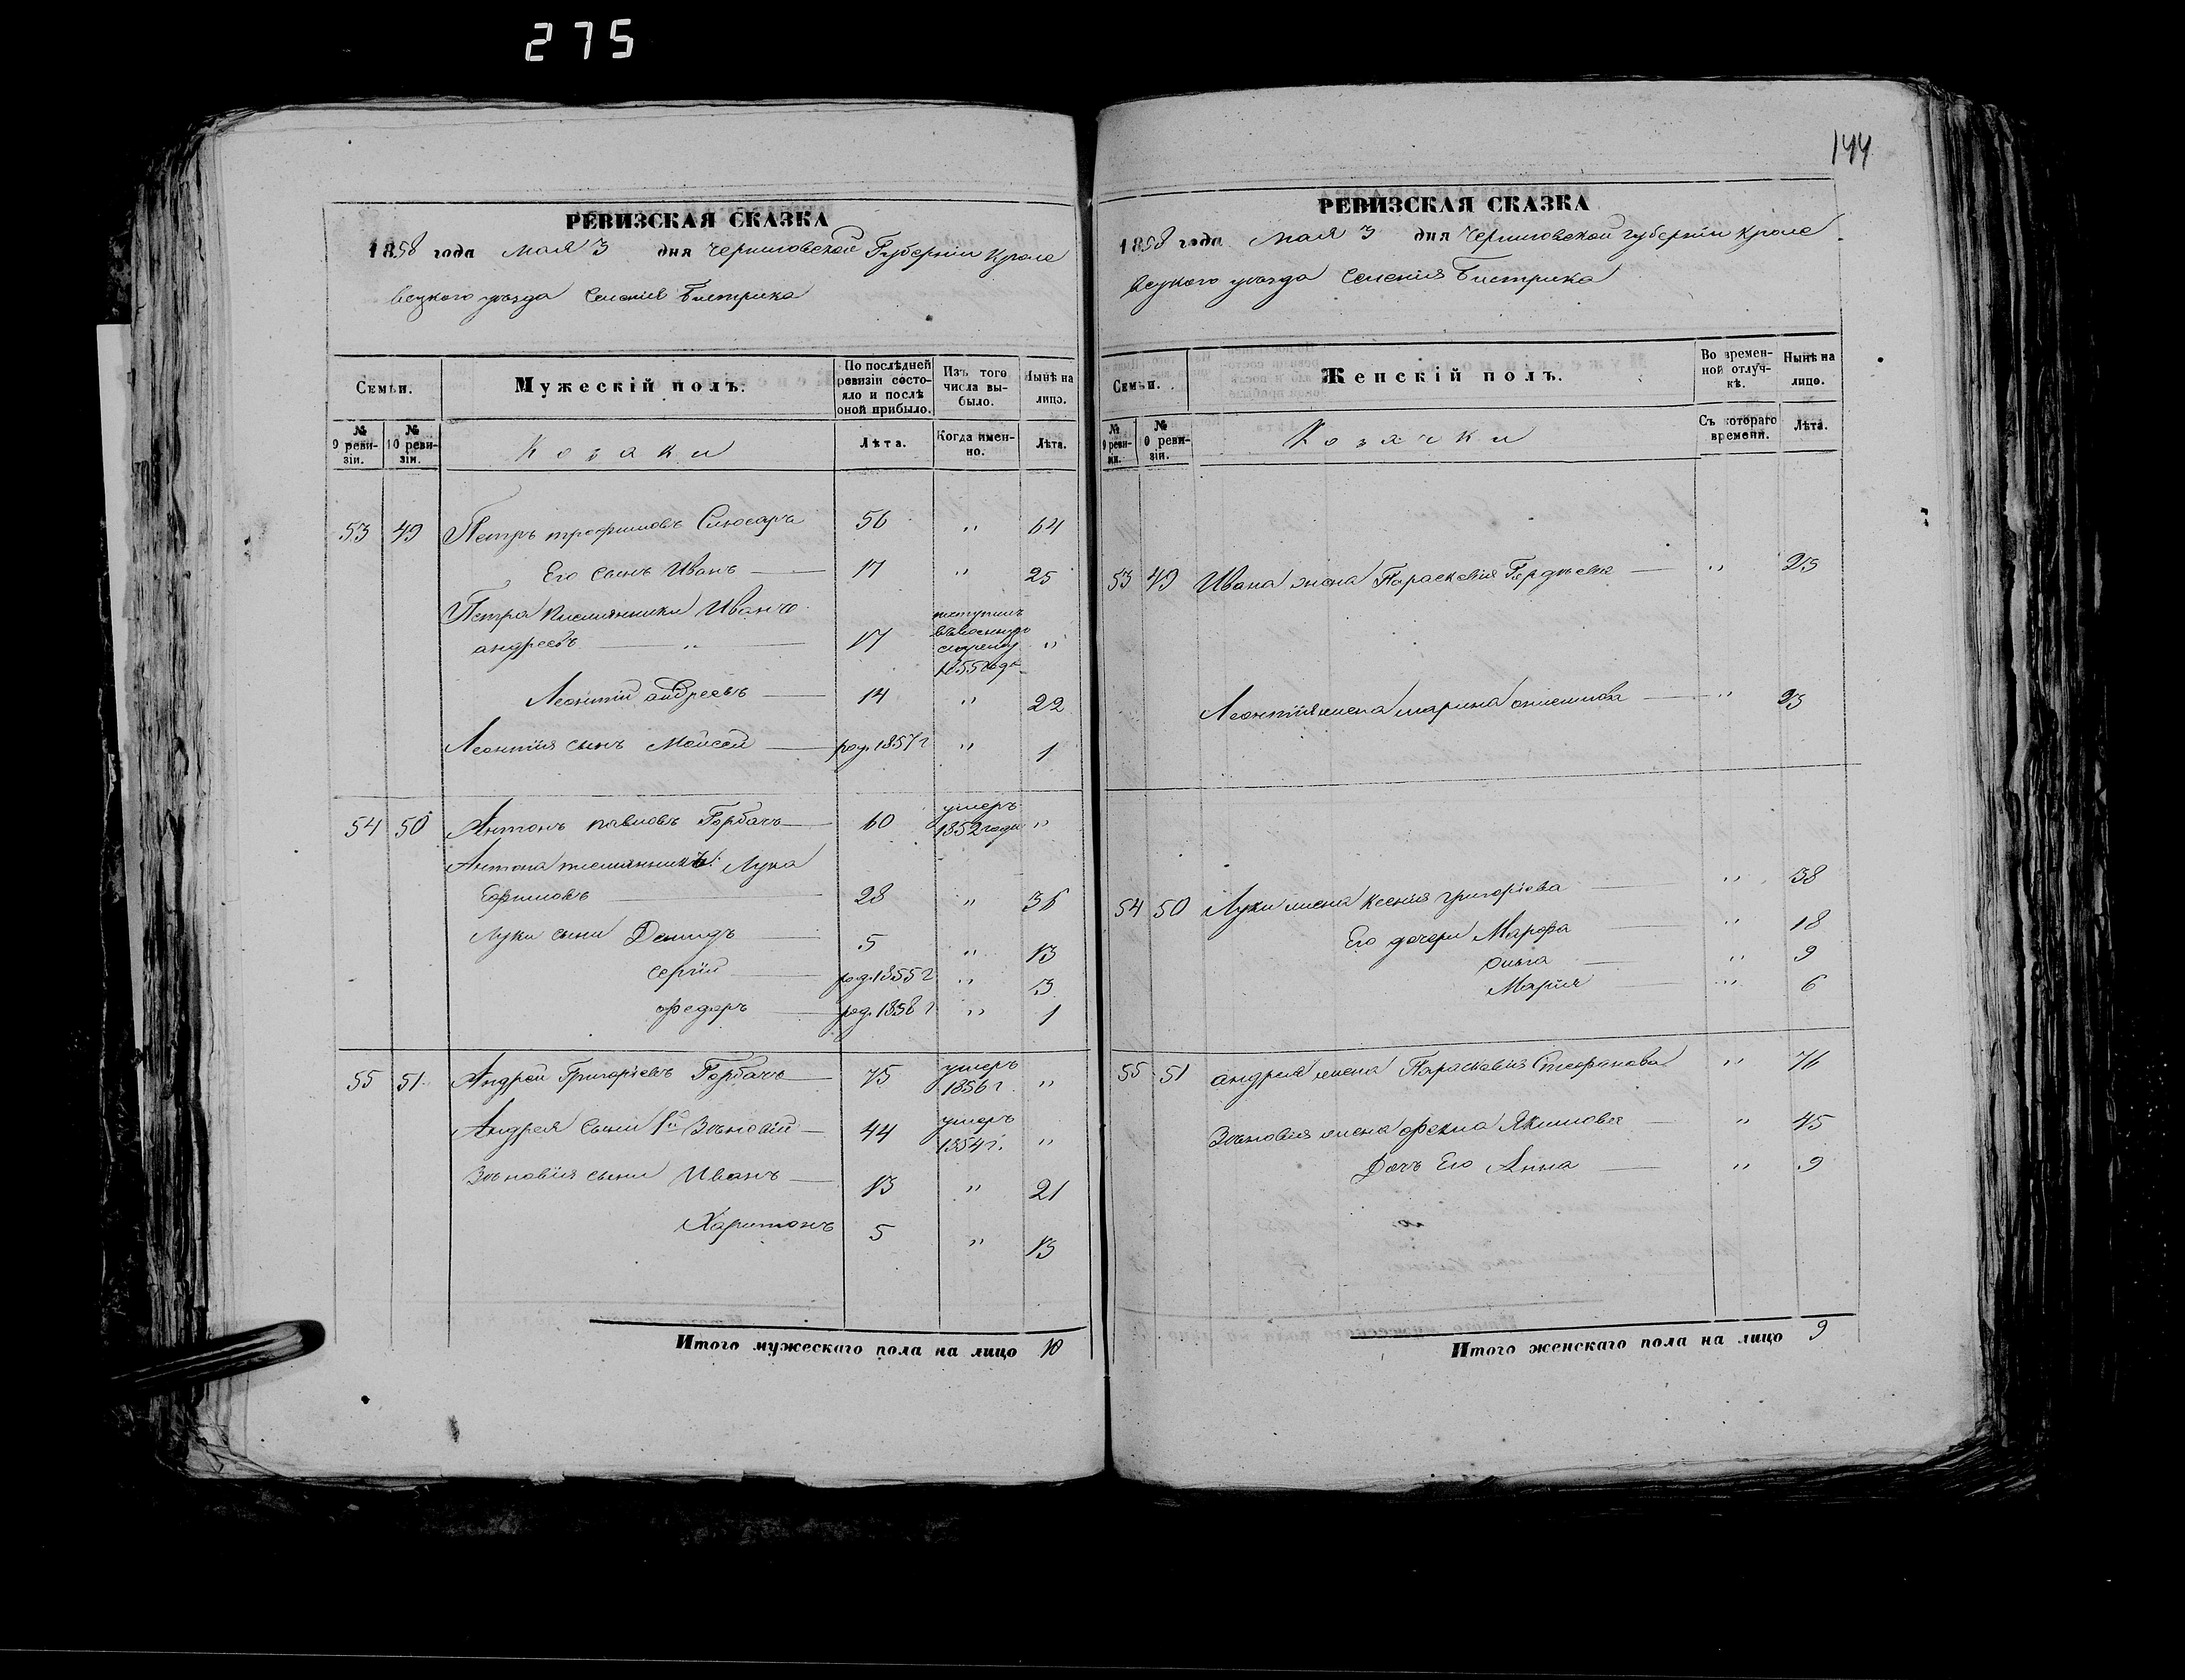 275
144
РЕВИЗСКАЯ СКАЗКА
1858 года мая 3 дня Черниговской Губернии Кроле
вецкого уезда Селения Бистрика
Семьи.
Мужескій полъ.
По послѣдней ревизіи состояло и послѣ оной прибыло.
Изъ того числа выбыло.
Нынѣ на лицо.
№ 9 ревизіи.
№ 10 ревизіи.
Козаки
Лѣта.
Когда именно.
Лѣта.
53 49 Петръ трофимовъ Слюсарь 56 " 64
Его сынъ Иванъ — 17 " 25
Петра племянники Иванъ
андреевъ — " — 17 поступилъ въ военную службу 1855 года "
Леонтій андреевъ — 14 " 22
Леонтія сынъ Мойсей — род. 1857 г " 1
54 50 Антонъ павловъ Горбачъ — 60 умеръ 1852 года "
Антона племянникъ Лука
Ефимовъ — 28 " 36
Луки сыни Демидъ — 5 " 13
сергій — род. 1855 г " 3
федоръ — род. 1858 г " 1
55 51 Андрей Григорьевъ Горбачъ — 75 умеръ 1856 г. "
Андрея сыни 1й Зѣновій — 44 умеръ 1854 г. "
Зѣновія сыни Иванъ — 13 " 21
Харитонъ 5 " 13
Итого мужескаго пола на лицо 10
РЕВИЗСКАЯ СКАЗКА
1858 года мая 3 дня Черниговской губернии Кроле
вецкого уезда Селения Бистрика
Семьи.
Женскій полъ.
Во временной отлучкѣ.
Нынѣ на лицо.
№ 9 ревизіи.
№ 0 ревизіи.
Козачки
Съ котораго времени.
Лѣта.
53 49 Ивана жена Параскевія — " 23
Леонтія жена марина — " 23
54 50 Луки жена Ксенія григоріева — " 38
Его дочери Марфа — " 18
Ольга — " 9
Марія — " 6
55 51 андрея жена Параскевія Стефанова " 76
Зѣновія жена фекла Якимова — " 45
Дочъ Его Анна — " 9
Итого женскаго пола на лицо 9